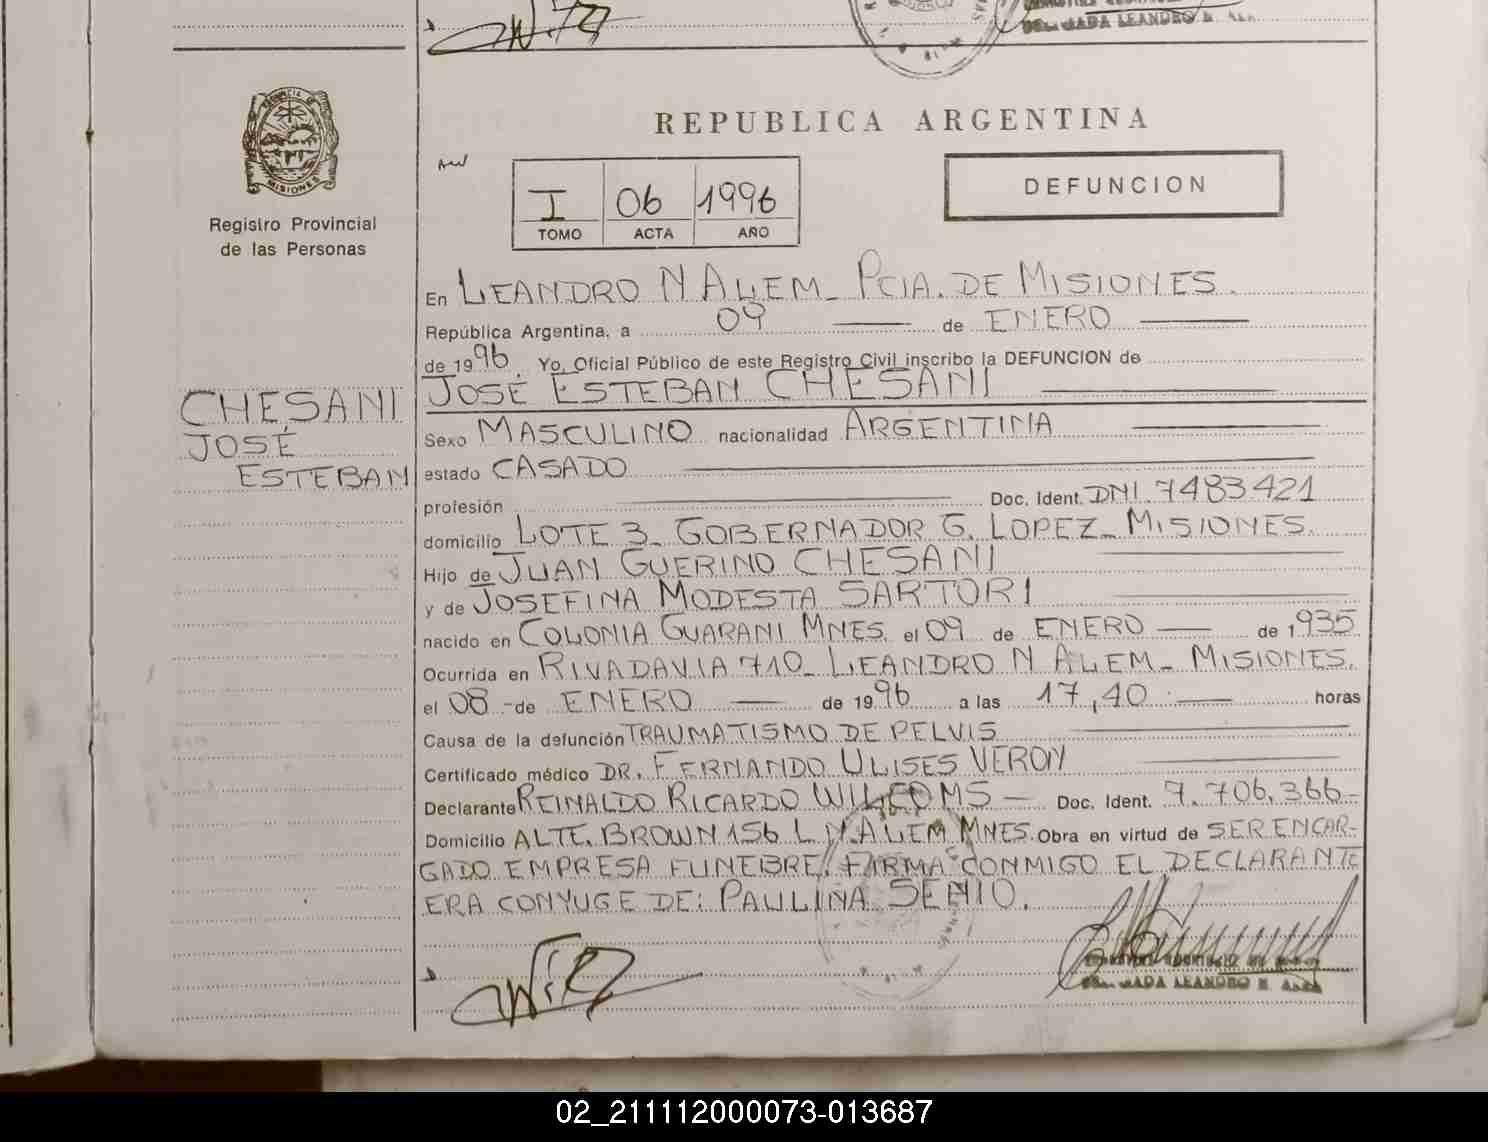 REPUBLICA ARGENTINA
PROVINCIA DE
MISIONES
Registro Provincial
de las Personas
I 06 1996
TOMO ACTA AÑO
DEFUNCION
En LEANDRO N ALEM_ PCIA. DE MISIONES.
República Argentina, a 09 de ENERO
de 1996. Yo, Oficial Público de este Registro Civil inscribo la DEFUNCION de
JOSÉ ESTEBAN CHESANI
CHESANI
JOSÉ
ESTEBAN
Sexo MASCULINO nacionalidad ARGENTINA
estado CASADO
profesión Doc. Ident. DNI. 7483.421
domicilio LOTE 3_ GOBERNADOR G. LOPEZ_ MISIONES.
Hijo de JUAN GUERINO CHESANI
y de JOSEFINA MODESTA SARTORI
nacido en COLONIA GUARANI MNES. el 09 de ENERO de 1.935
Ocurrida en RIVADAVIA 710_ LEANDRO N ALEM_ MISIONES.
el 08 - de ENERO de 1996 a las 17,40 horas
Causa de la defunción TRAUMATISMO DE PELVIS
Certificado médico DR. FERNANDO ULISES VERON
Declarante REINALDO RICARDO Doc. Ident. 7.706.366-
Domicilio ALTE. BROWN 156 L N ALEM MNES. Obra en virtud de SER ENCAR-
GADO EMPRESA FUNEBRE. FIRMA CONMIGO EL DECLARANTE
ERA CONYUGE DE: PAULINA SENIO.
LEANDRO N. ALEM
02_211112000073-013687